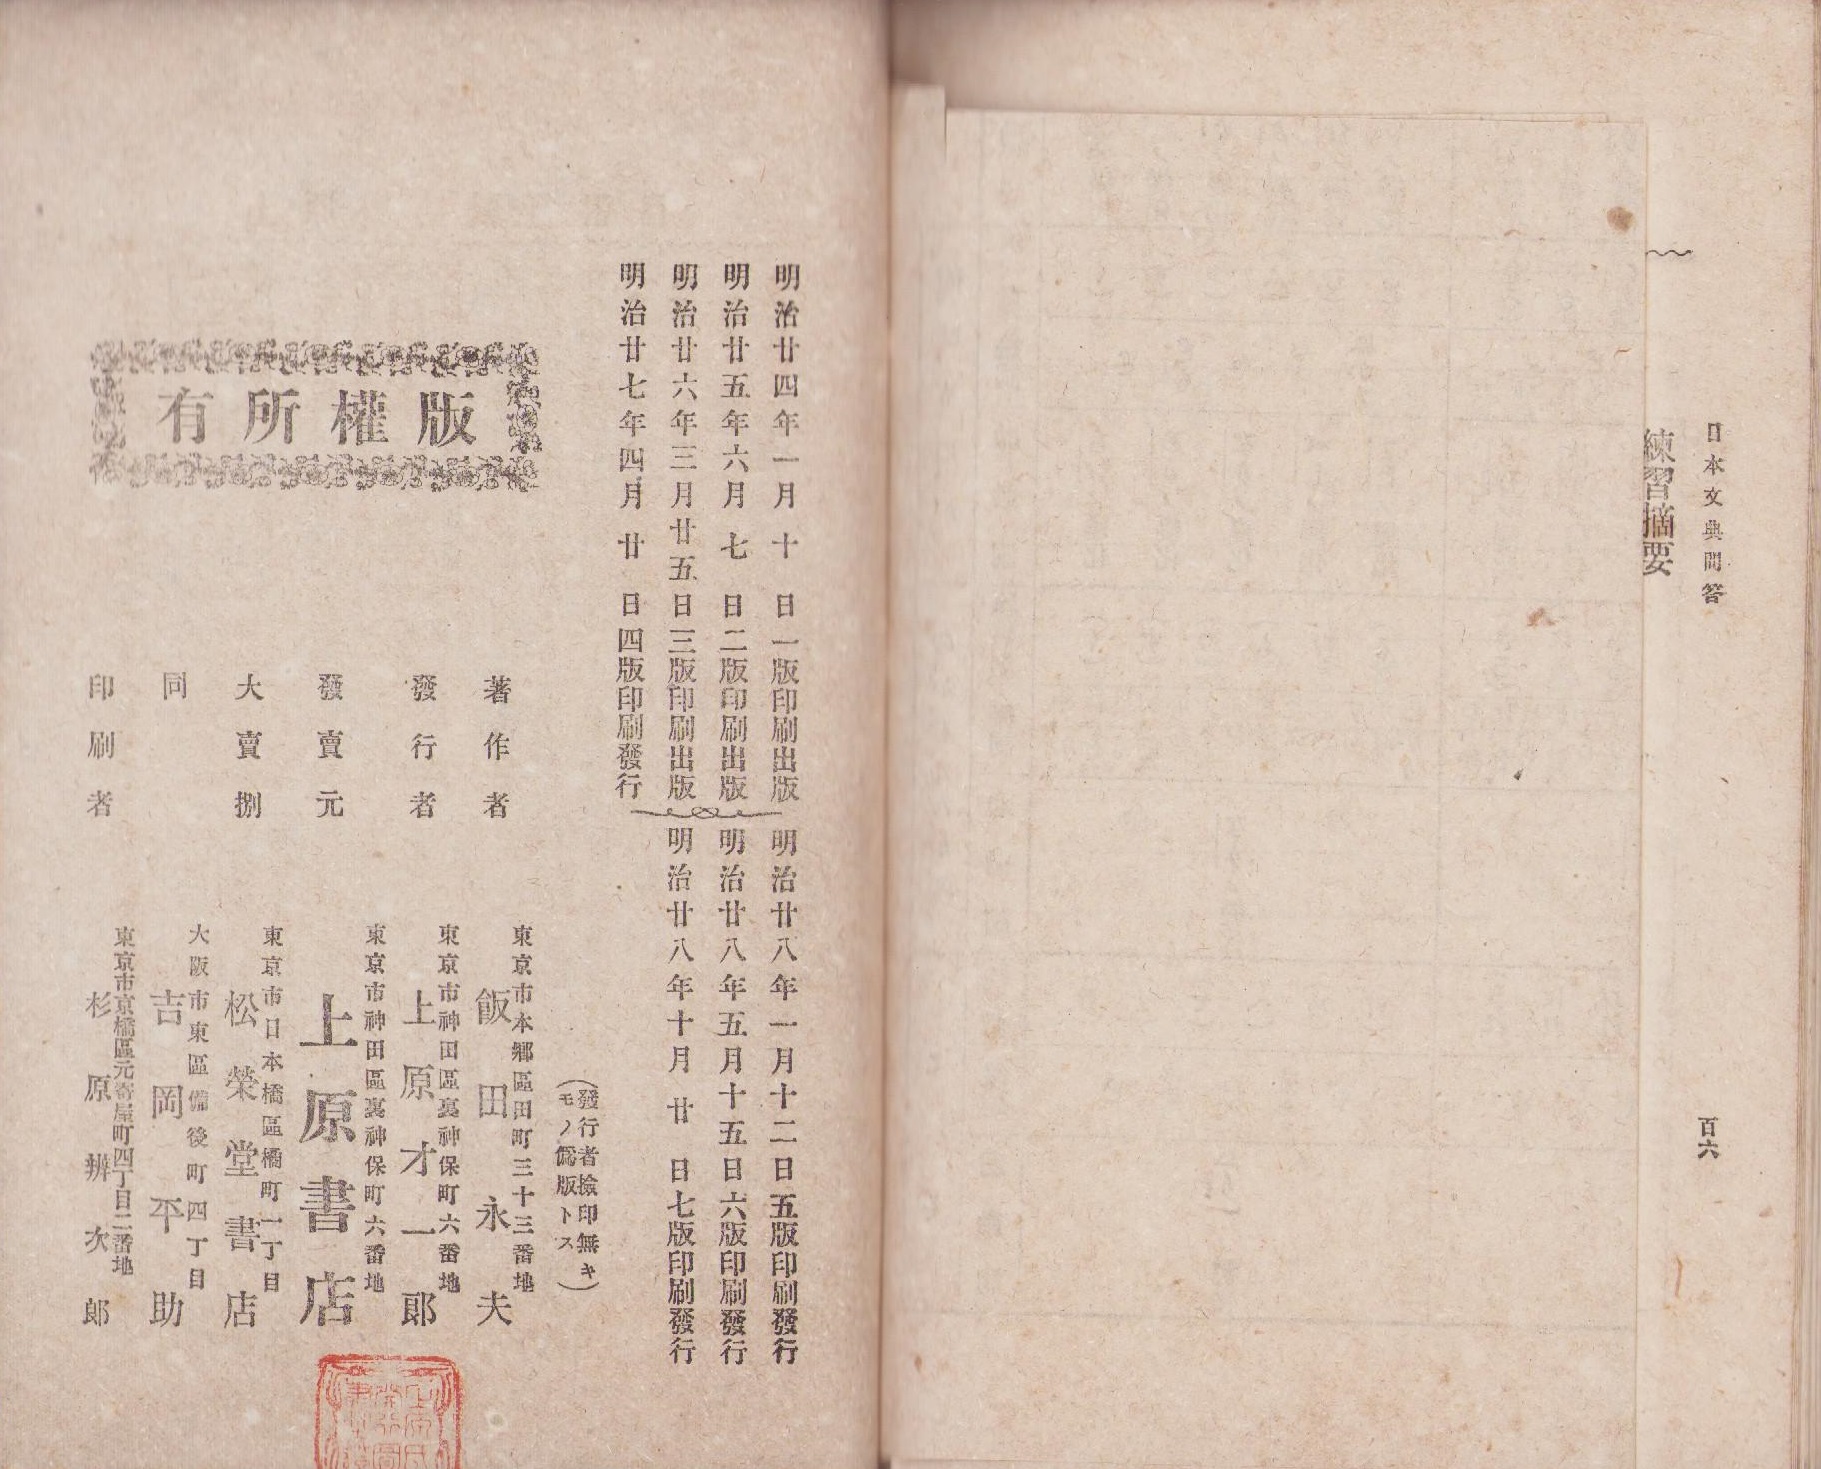 日本文典問答
百六
練習摘要
明治廿四年一月十日一版印刷出版
明治廿五年六月七日二版印刷出版
明治廿六年三月廿五日三版印刷出版
明治廿七年四月廿日四版印刷發行
明治廿八年一月十二日五版印刷發行
明治廿八年五月十五日六版印刷發行
明治廿八年十月廿日七版印刷發行
(發行者檢印無キ
モノ僞版トス)
版權所有
著作者
東京市本郷區田町三十三番地
飯田永夫
發行者
東京市神田區裏神保町六番地
上原才一郎
發賣元
東京市神田區裏神保町六番地
上原書店
大賣捌
東京市日本橋區橘町一丁目
松榮堂書店
同
大阪市東區備後町四丁目
吉岡平助
印刷者
東京市京橋區元寄屋町四丁目二番地
杉原辨次郎